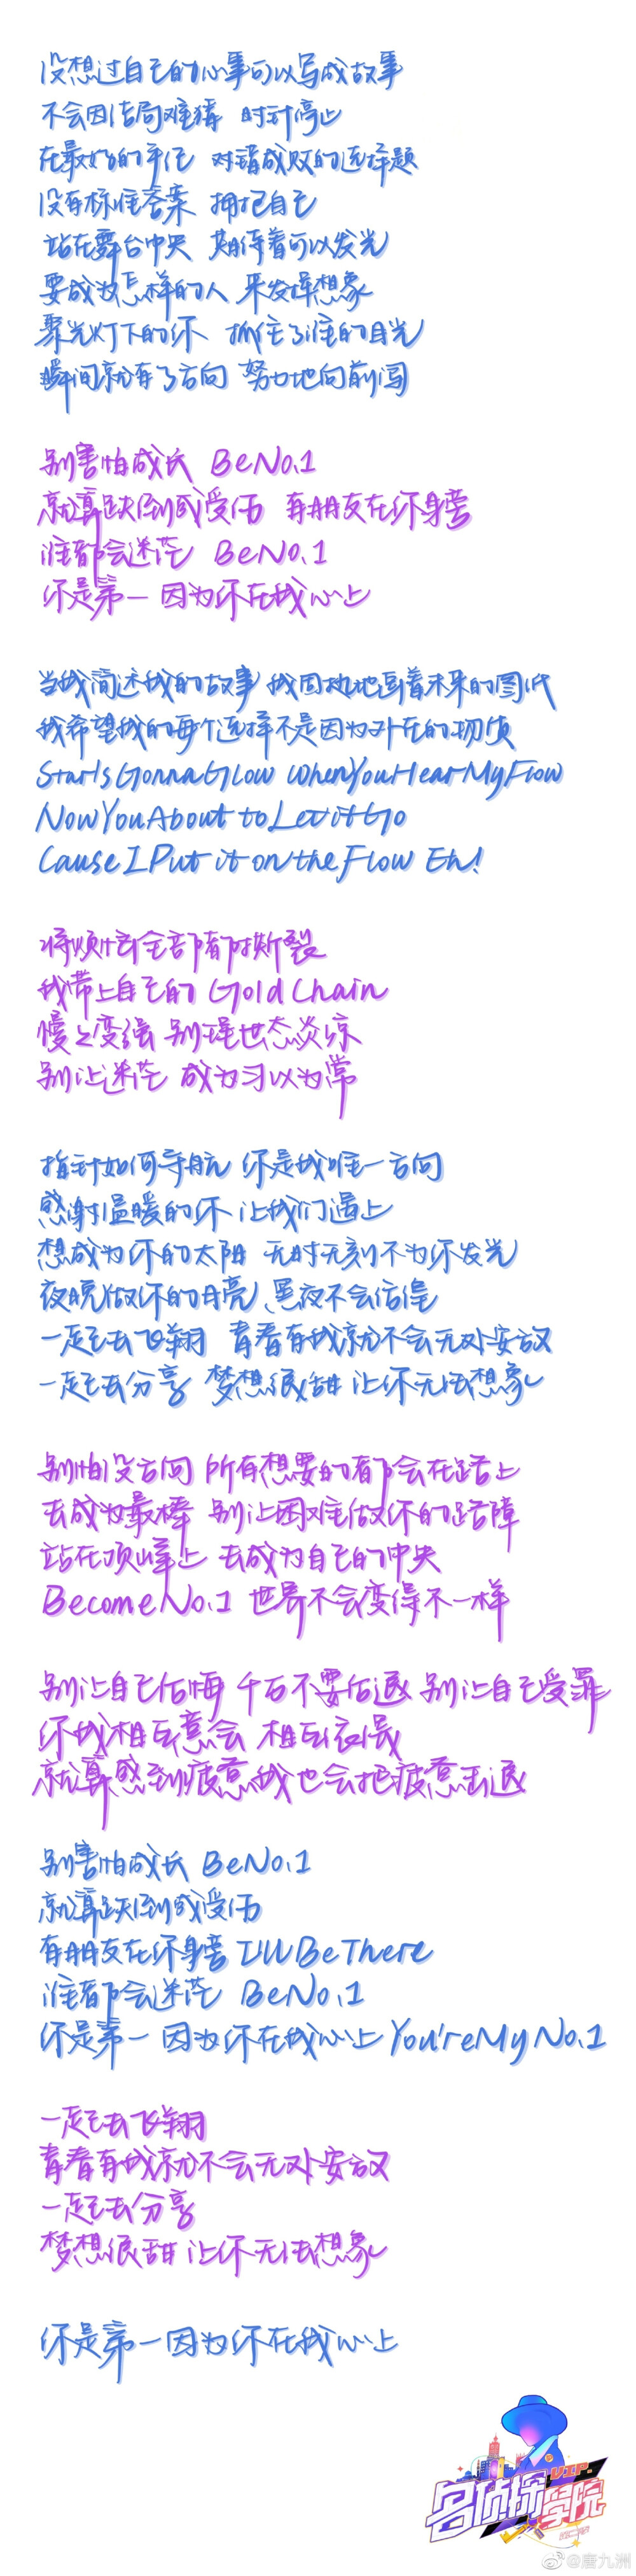 没想过自己的心事可以写成故事
不会因结局难猜 时针停止
在最好的年纪 对错成败的选择题
没有标准答案 拥抱自己
站在舞台中央 期待着可以发光
要成为怎样的人 来发挥想象
聚光灯下的你 抓住了谁的目光
瞬间就有了方向 努力地向前闯
别害怕成长 Be No.1
就算跌倒或受伤 有朋友在你身旁
谁都会迷茫 Be No.1
你是第一 因为你在我心上
当我简述我的故事 我固执地画着未来的图纸
我希望我的每个选择不是因为外在的物质
Star Is Gonna Glow When You Hear My Flow
Now You About to Let it Go
Cause I Put it on the Flow Eh!
将烦恼全部都撕裂
我带上自己的 Gold Chain
慢慢变强 别理世态炎凉
别让迷茫 成为习以为常
指针如何导航 你是我唯一方向
感谢温暖的你 让我们遇上
想成为你的太阳 无时无刻不为你发光
夜晚做你的月亮 黑夜不会彷徨
一起去飞翔 青春有我就不会无处安放
一起去分享 梦想很甜 让你无法想象
别怕没方向 所有想要的都会在路上
去成为最棒 别让困难做你的路障
站在顶峰上 去成为自己的中央
Become No.1 世界不会变得不一样
别让自己后悔 千万不要后退 别让自己受罪
你我相互意会 相互依偎
就算感到疲惫我也会把疲惫击退
别害怕成长 Be No.1
就算跌倒或受伤
有朋友在你身旁 I'll Be There
谁都会迷茫 Be No.1
你是第一 因为你在我心上 You're My No.1
一起去飞翔
青春有我就不会无处安放
一起去分享
梦想很甜 让你无法想象
你是第一因为你在我心上
VIP
名侦探学院
第二季
@唐九洲